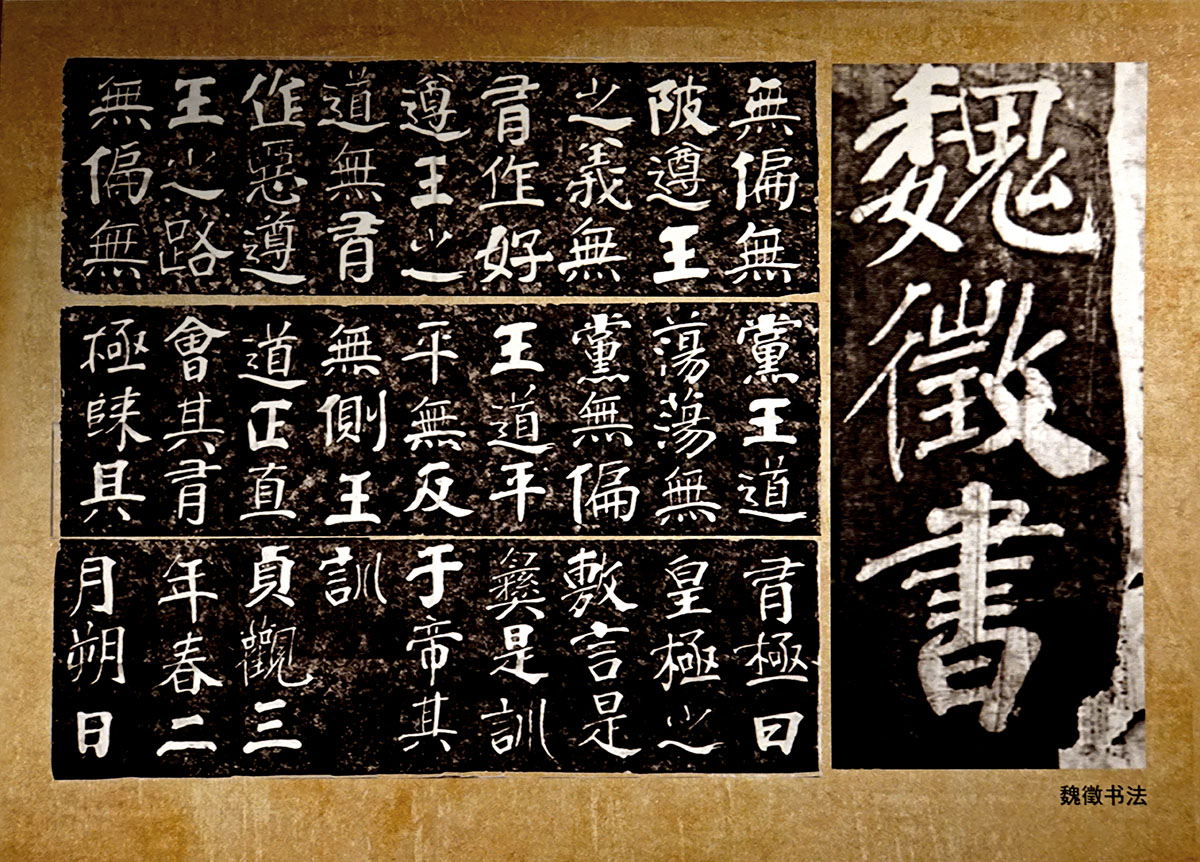 魏徵書
無偏無
陂遵王
之義無
有作好
遵王之
道無有
作惡遵
王之路
無偏無
黨王道
蕩蕩無
黨無偏
王道平
平無反
無側王
道正直
會其有
極歸具
有極曰
皇極之
敷言是
彝是訓
于帝其
訓
貞觀三
年春二
月朔日
魏徵书法